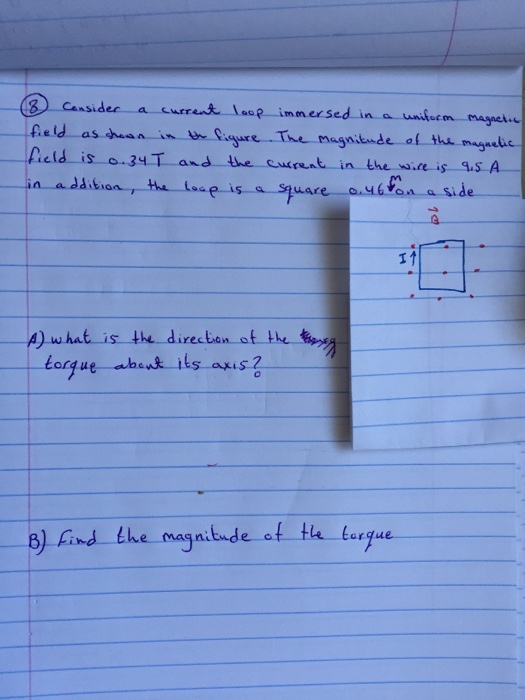 8 Consider a current loop immersed in a uniform magnetic
field as shown in the figure. The magnitude of the magnetic
field is 0.34T and the current in the wire is 9.5 A
in addition, the loop is a square 0.46 m on a side
B
I
A) what is the direction of the
torque about its axis?
B) Find the magnitude of the torque